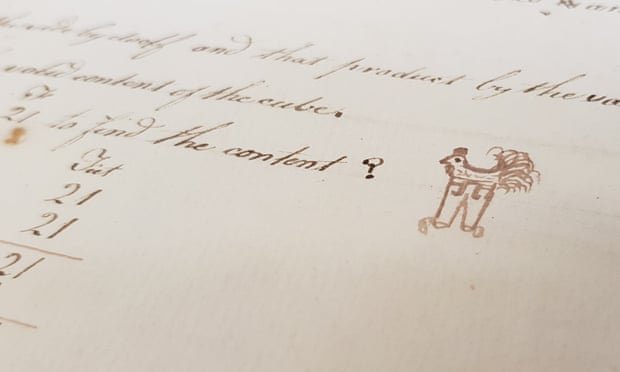 the side by itself and that product by the
solid content of the cube.
Ft
21 to find the content?
Feet
21
21
21